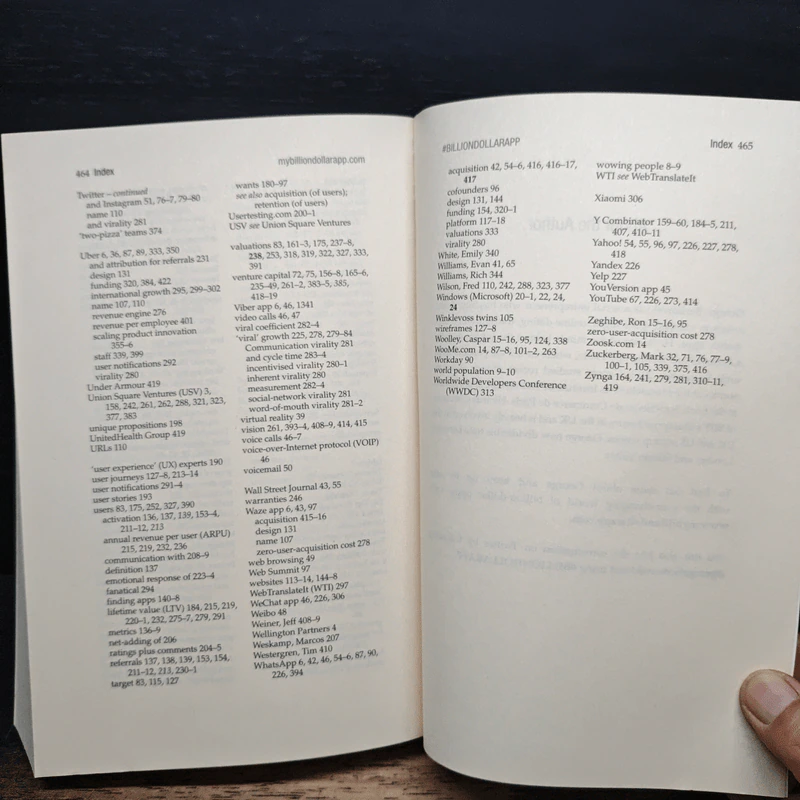 464 Index
mybilliondollarapp.com
Twitter – continued
and Instagram 51, 76–7, 79–80
name 110
and virality 281
'two-pizza' teams 374
Uber 6, 36, 87, 89, 333, 350
and attribution for referrals 231
design 131
funding 320, 384, 422
international growth 295, 299–302
name 107, 110
revenue engine 276
revenue per employee 401
scaling product innovation
355–6
staff 339, 399
user notifications 292
virality 280
Under Armour 419
Union Square Ventures (USV) 3,
158, 242, 261, 262, 288, 321, 323,
377, 383
unique propositions 198
UnitedHealth Group 419
URLs 110
'user experience' (UX) experts 190
user journeys 127–8, 213–14
user notifications 291–4
user stories 193
users 83, 175, 252, 327, 390
activation 136, 137, 139, 153–4,
211–12, 213
annual revenue per user (ARPU)
215, 219, 232, 236
communication with 208–9
definition 137
emotional response of 223–4
fanatical 294
finding apps 140–8
lifetime value (LTV) 184, 215, 219,
220–1, 232, 275–7, 279, 291
metrics 136–9
net-adding of 206
ratings plus comments 204–5
referrals 137, 138, 139, 153, 154,
211–12, 213, 230–1
target 83, 115, 127
wants 180–97
see also acquisition (of users);
retention (of users)
Usertesting.com 200–1
USV see Union Square Ventures
valuations 83, 161–3, 175, 237–8,
238, 253, 318, 319, 322, 327, 333,
391
venture capital 72, 75, 156–8, 165–6,
235–49, 261–2, 383–5, 385,
418–19
Viber app 6, 46, 1341
video calls 46, 47
viral coefficient 282–4
'viral' growth 225, 278, 279–84
Communication virality 281
and cycle time 283–4
incentivised virality 280–1
inherent virality 280
measurement 282–4
social-network virality 281
word-of-mouth virality 281–2
virtual reality 39
vision 261, 393–4, 408–9, 414, 415
voice calls 46–7
voice-over-Internet protocol (VOIP)
46
voicemail 50
Wall Street Journal 43, 55
warranties 246
Waze app 6, 43, 97
acquisition 415–16
design 131
name 107
zero-user-acquisition cost 278
web browsing 49
Web Summit 97
websites 113–14, 144–8
WebTranslateIt (WTI) 297
WeChat app 46, 226, 306
Weibo 48
Weiner, Jeff 408–9
Wellington Partners 4
Weskamp, Marcos 207
Westergren, Tim 410
WhatsApp 6, 42, 46, 54–6, 87, 90,
226, 394
#BILLIONDOLLARAPP
Index 465
acquisition 42, 54–6, 416, 416–17,
417
cofounders 96
design 131, 144
funding 154, 320–1
platform 117–18
valuations 333
virality 280
White, Emily 340
Williams, Evan 41, 65
Williams, Rich 344
Wilson, Fred 110, 242, 288, 323, 377
Windows (Microsoft) 20–1, 22, 24,
24
Winklevoss twins 105
wireframes 127–8
Woolley, Caspar 15–16, 95, 124, 338
WooMe.com 14, 87–8, 101–2, 263
Workday 90
world population 9–10
Worldwide Developers Conference
(WWDC) 313
wowing people 8–9
WTI see WebTranslateIt
Xiaomi 306
Y Combinator 159–60, 184–5, 211,
407, 410–11
Yahoo! 54, 55, 96, 97, 226, 227, 278,
418
Yandex 226
Yelp 227
YouVersion app 45
YouTube 67, 226, 273, 414
Zeghibe, Ron 15–16, 95
zero-user-acquisition cost 278
Zoosk.com 14
Zuckerberg, Mark 32, 71, 76, 77–9,
100–1, 105, 339, 375, 416
Zynga 164, 241, 279, 281, 310–11,
419